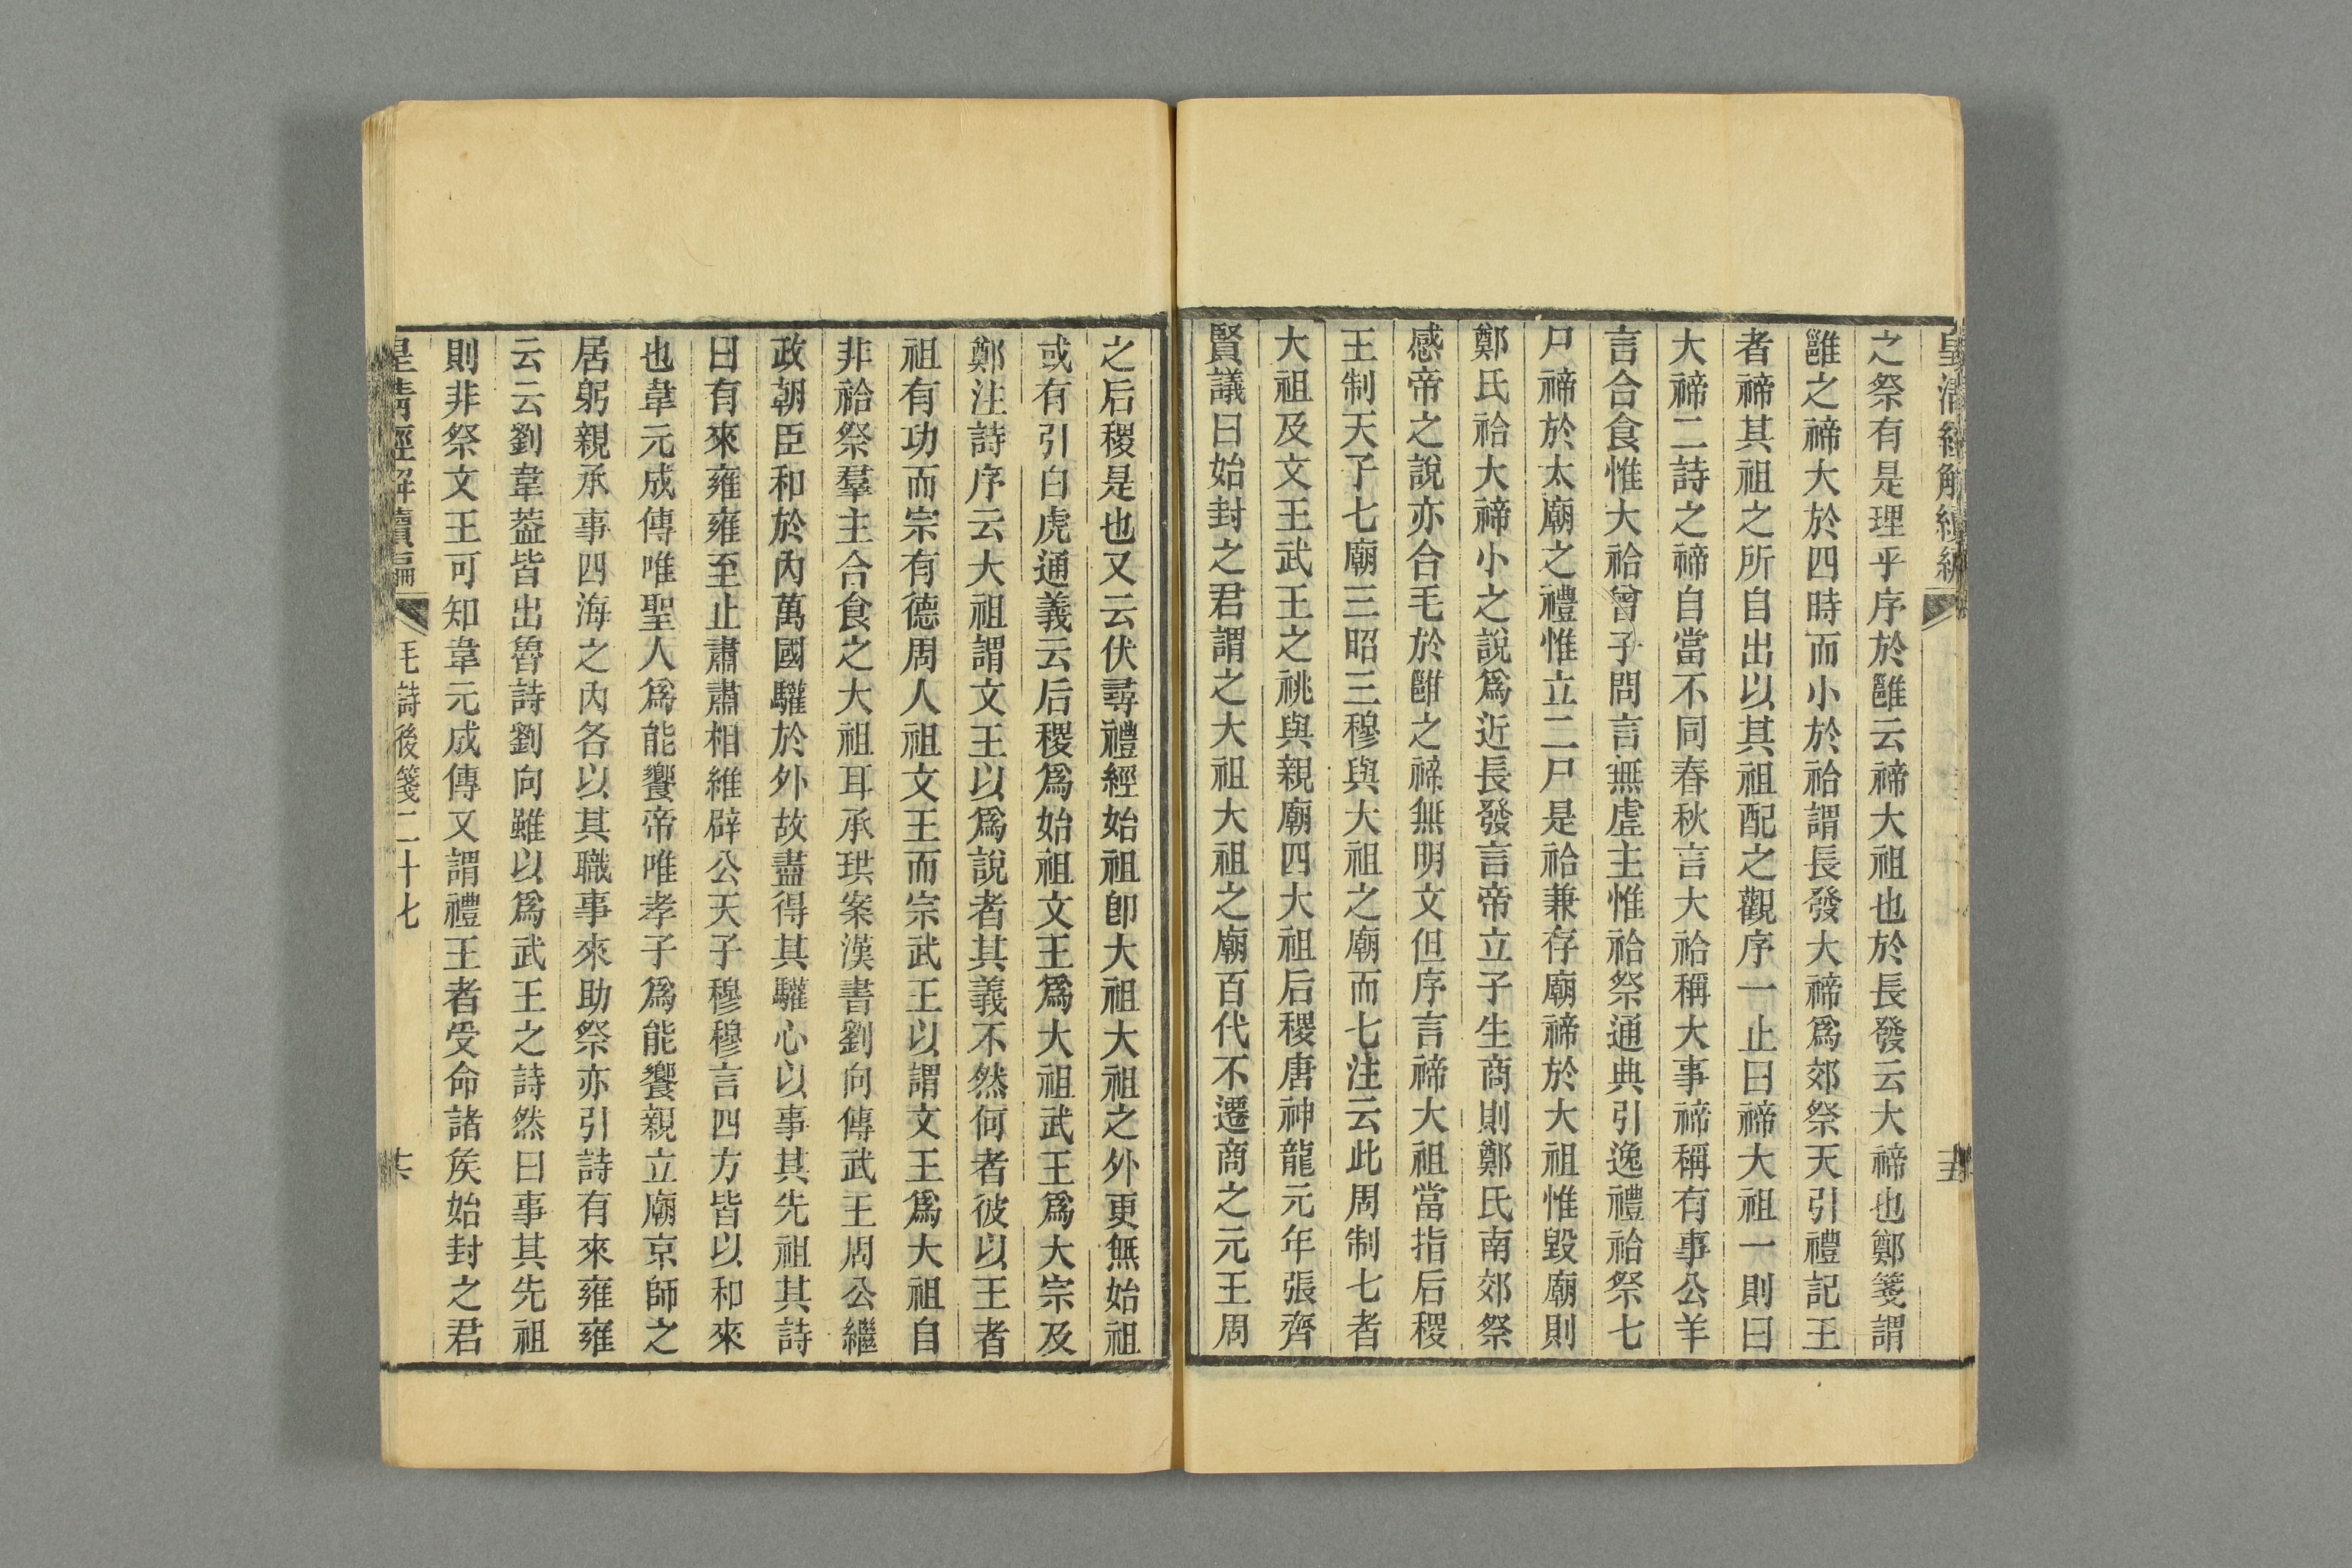 皇淸經解續編
五
之祭有是理乎序於雝云禘大祖也於長發云大禘也鄭箋謂
雝之禘大於四時而小於祫謂長發大禘爲郊祭天引禮記王
者禘其祖之所自出以其祖配之觀序一止曰禘大祖一則曰
大禘二詩之禘自當不同春秋言大祫稱大事禘稱有事公羊
言合食惟大祫曾子問言無虛主惟祫祭通典引逸禮祫祭七
尸禘於太廟之禮惟立二尸是祫兼存廟禘於大祖惟毀廟則
鄭氏祫大禘小之說爲近長發言帝立子生商則鄭氏南郊祭
感帝之說亦合毛於雝之禘無明文但序言禘大祖當指后稷
王制天子七廟三昭三穆與大祖之廟而七注云此周制七者
大祖及文王武王之祧與親廟四大祖后稷唐神龍元年張齊
賢議曰始封之君謂之大祖大祖之廟百代不遷商之元王周
之后稷是也又云伏尋禮經始祖卽大祖大祖之外更無始祖
或有引白虎通義云后稷爲始祖文王爲大祖武王爲大宗及
鄭注詩序云大祖謂文王以爲說者其義不然何者彼以王者
祖有功而宗有德周人祖文王而宗武王以謂文王爲大祖自
非祫祭羣主合食之大祖耳承珙案漢書劉向傳武王周公繼
政朝臣和於內萬國驩於外故盡得其驩心以事其先祖其詩
曰有來雍雍至止肅肅相維辟公天子穆穆言四方皆以和來
也韋元成傳唯聖人爲能饗帝唯孝子爲能饗親立廟京師之
居躬親承事四海之內各以其職事來助祭亦引詩有來雍雍
云云劉韋葢皆出魯詩劉向雖以爲武王之詩然曰事其先祖
則非祭文王可知韋元成傳又謂禮王者受命諸矦始封之君
皇淸經解續編
毛詩後箋二十七